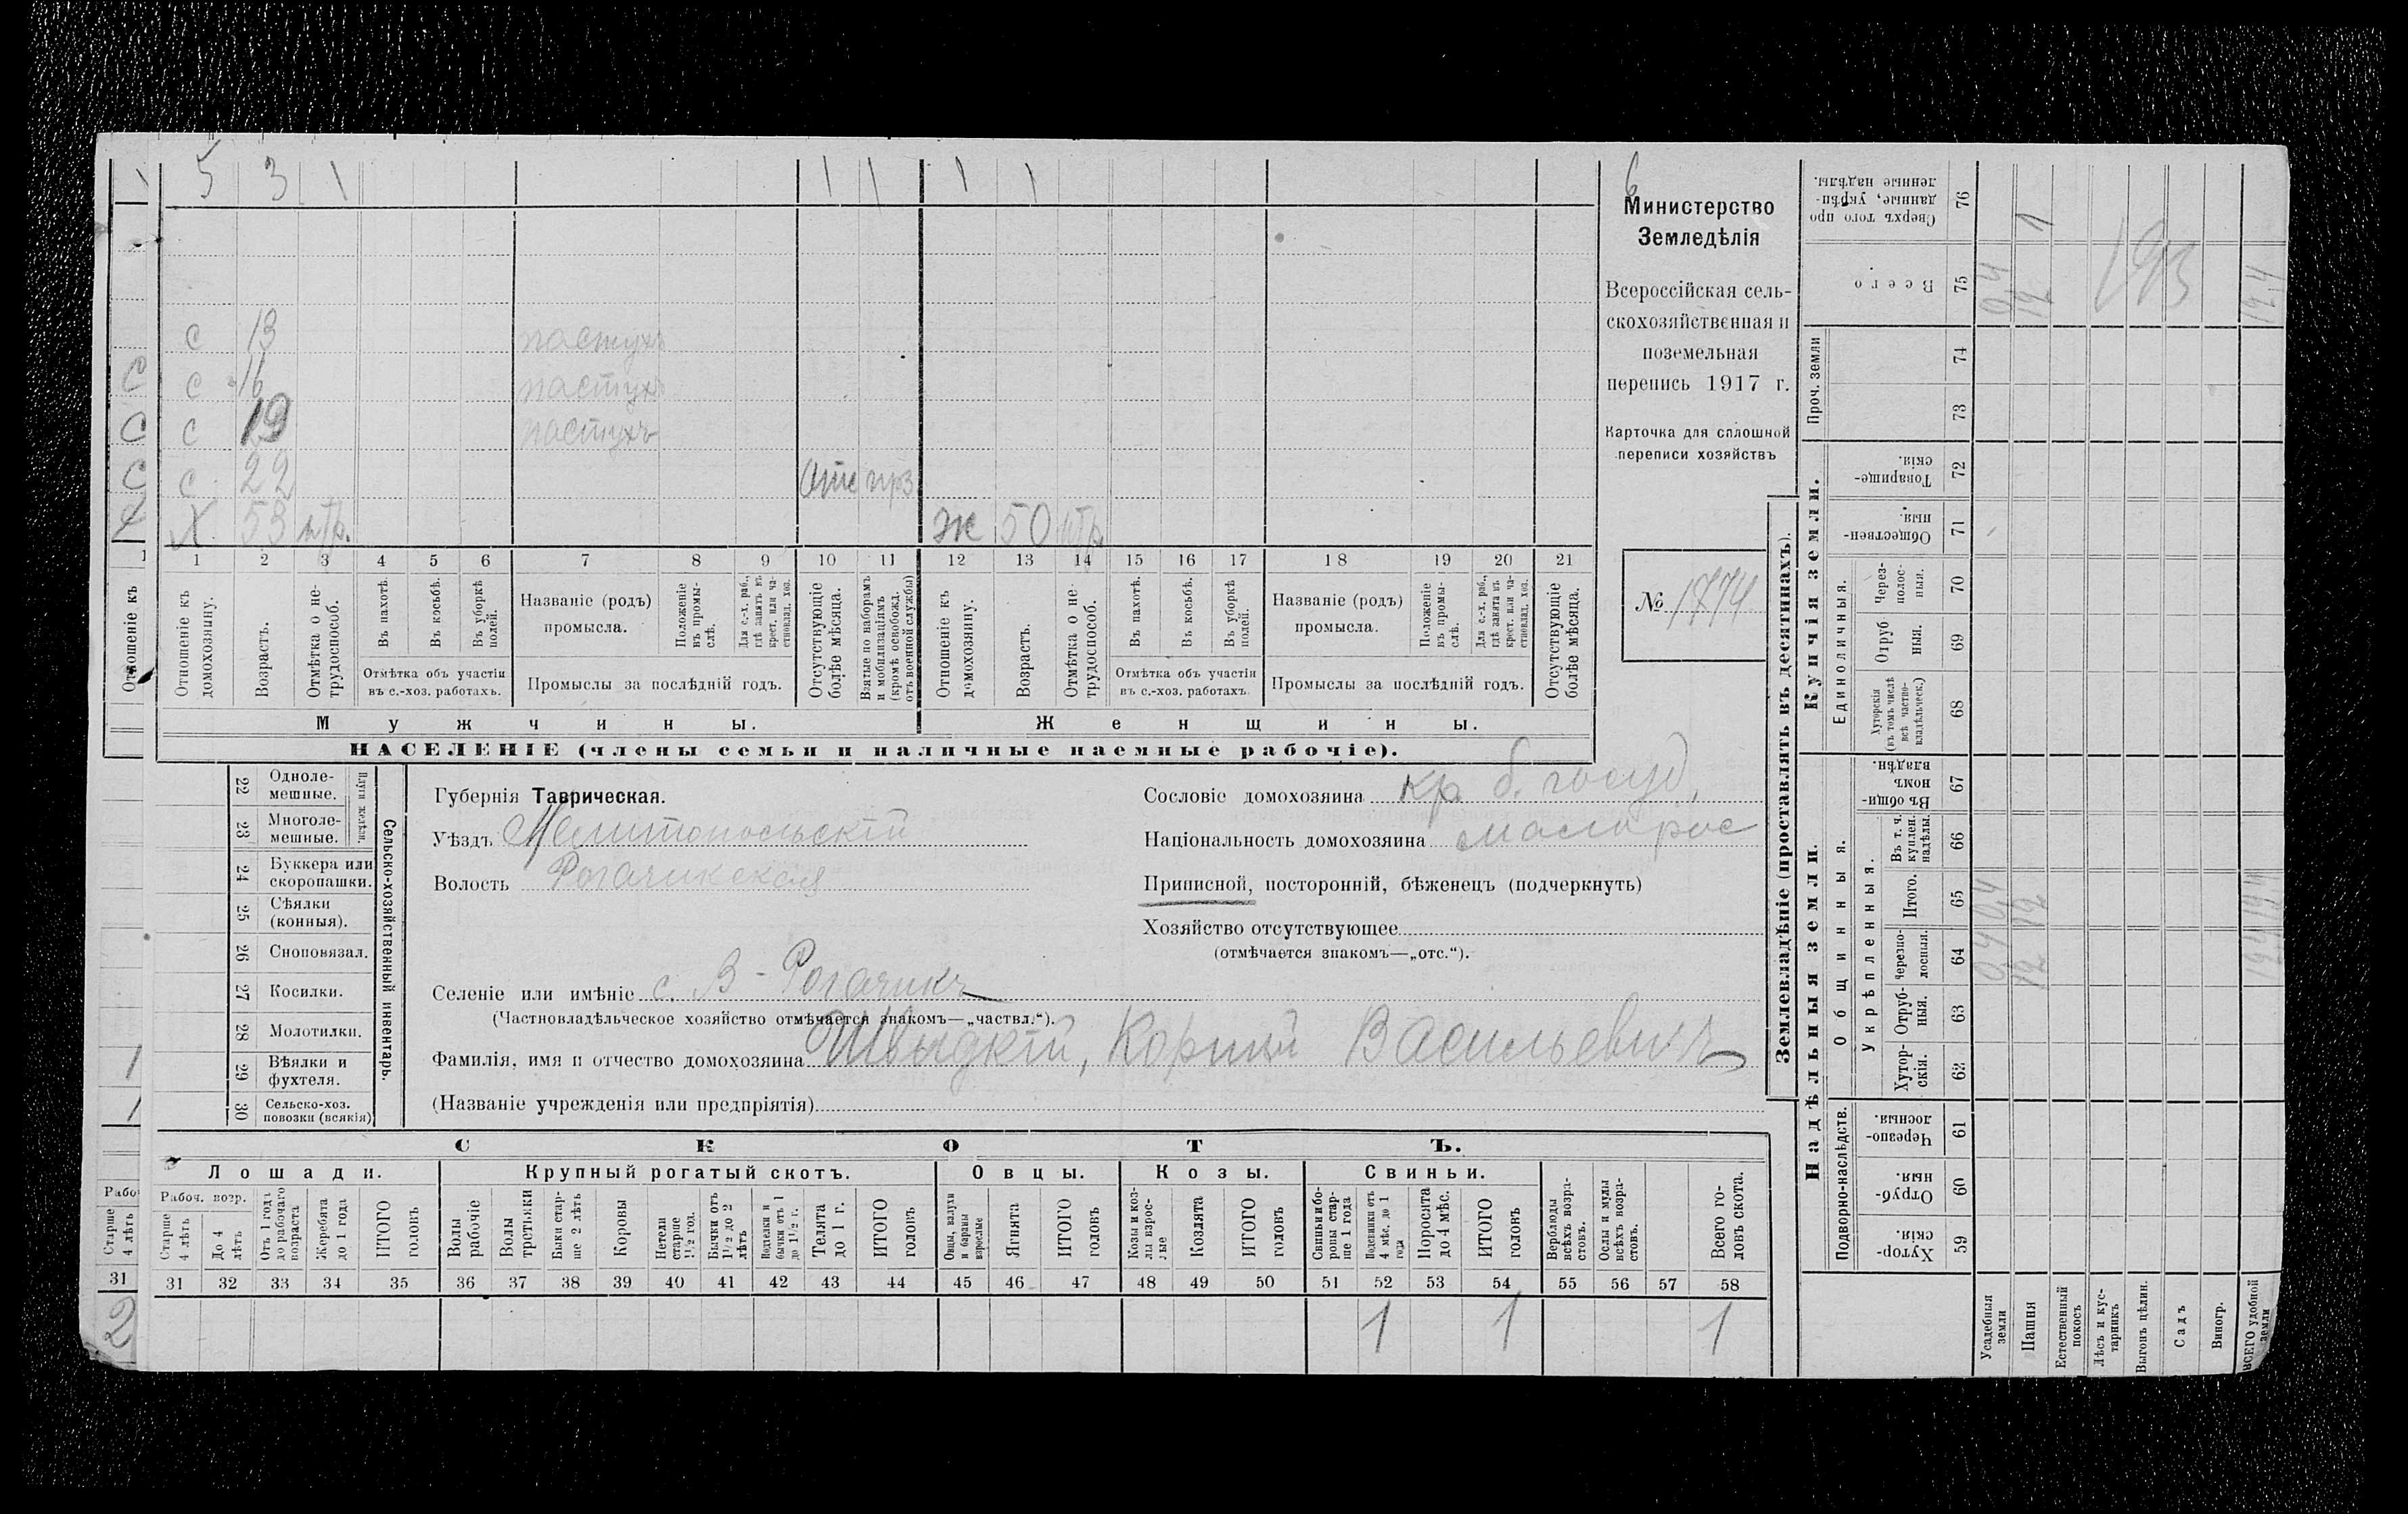 5 3 1 1 1 1 1
с 13 пастухъ
с 16 пастухъ
с 19 пастухъ
с 22 отс прз
Х 53 нтр. ж 50 нтр.
1 2 3 4 5 6 7 8 9 10 11 12 13 14 15 16 17 18 19 20 21
Отношеніе къ домохозяину.
Возрастъ.
Отмѣтка о не-трудоспособ.
Въ пахотѣ.
Въ косьбѣ.
Въ уборкѣ полей.
Отмѣтка объ участіи
въ с.-хоз. работахъ.
Названіе (родъ)
промысла.
Положеніе въ промы-слѣ.
Для с.-х. раб., гдѣ занятъ въ крест. или ча-стновлад. хоз.
Промыслы за послѣдній годъ.
Отсутствующіе болѣе мѣсяца.
Взятые по наборамъ и мобилизаціямъ (кромѣ освобожд. отъ военной службы)
Отношеніе къ домохозяину.
Возрастъ.
Отмѣтка о не-трудоспособ.
Въ пахотѣ.
Въ косьбѣ.
Въ уборкѣ полей.
Отмѣтка объ участіи
въ с.-хоз. работахъ.
Названіе (родъ)
промысла.
Положеніе въ промы-слѣ.
Для с.-х. раб., гдѣ занята въ крест. или ча-стновлад. хоз.
Промыслы за послѣдній годъ.
Отсутствующіе болѣе мѣсяца.
Мужчины. Женщины.
НАСЕЛЕНІЕ (члены семьи и наличные наемные рабочіе).
6
Министерство
Земледѣлія
Всероссійская сель-
скохозяйственная и
поземельная
перепись 1917 г.
Карточка для сплошной
переписи хозяйствъ
№ 1774
Сельско-хозяйственный инвентарь.
Плуги желѣзн.
22 Одноле-
мешные.
23 Многоле-
мешные.
24 Буккера или
скоропашки.
25 Сѣялки
(конныя).
26 Сноповязал.
27 Косилки.
28 Молотилки.
29 Вѣялки и
фухтеля.
30 Сельско-хоз.
повозки (всякія)
Губернія Таврическая.
Уѣздъ Мелитопольскій
Волость Рогачикская
Селеніе или имѣніе с. В-Рогачикъ
(Частновладѣльческое хозяйство отмѣчается знакомъ—„частвл.“).
Фамилія, имя и отчество домохозяина Швыдкій, Корнилій Васильевичъ
(Названіе учрежденія или предпріятія)
Сословіе домохозяина кр. б. госуд.
Національность домохозяина малорос
Приписной, посторонній, бѣженецъ (подчеркнуть)
Хозяйство отсутствующее
(отмѣчается знакомъ—„отс.“).
СКОТЪ.
Лошади. Крупный рогатый скотъ. Овцы. Козы. Свиньи.
Рабоч. возр.
Старше 4 лѣтъ
До 4 лѣтъ
Отъ 1 года до рабочаго возраста
Жеребята до 1 года
ИТОГО головъ
Волы рабочіе
Волы третьяки
Быки стар-ше 2 лѣтъ
Коровы
Нетели старше 1½ год.
Бычки отъ 1½ до 2 лѣтъ
Подтелки и бычки отъ 1 до 1½ г.
Телята до 1 г.
ИТОГО головъ
Овцы, валухи и бараны взрослые
Ягнята
ИТОГО головъ
Козы и коз-лы взрос-лые
Козлята
ИТОГО головъ
Свиньи и бо-ровы стар-ше 1 года
Подсвинки отъ 4 мѣс. до 1 года
Поросята до 4 мѣс.
ИТОГО головъ
Верблюды всѣхъ возра-стовъ.
Ослы и мулы всѣхъ возра-стовъ.
Всего го-ловъ скота.
31 32 33 34 35 36 37 38 39 40 41 42 43 44 45 46 47 48 49 50 51 52 53 54 55 56 57 58
1 1 1
Землевладѣніе (проставлять въ десятинахъ).
Надѣльныя земли. Купчія земли. Проч. земли
Подворно-наслѣдств.
Общинныя.
Укрѣпленныя.
Единоличныя.
59 Хутор-скія.
60 Отруб-ныя.
61 Черезпо-лосныя.
62 Хутор-скія.
63 Отруб-ныя.
64 Черезпо-лосныя.
65 Итого.
66 Въ т. ч. куплен. надѣлы.
67 Въ общи-номъ владѣн.
68 Хуторскія (въ томъ числѣ всѣ частно-владѣльческ.)
69 Отруб ныя.
70 Через-полос-ныя.
71 Обществен-ныя.
72 Товарище-скія.
73
74
75 Всего
76 Сверхъ того про данные, укрѣп-ленные надѣлы.
Усадебныя земли 0,4 0,4 0,4
Пашня 12 12 12 1
Естественный покосъ
Лѣсъ и кус-тарникъ
Выгонъ цѣлин.
Садъ
Виногр.
ВСЕГО удобной земли 12,4 12,4 12,4
193
Отношеніе къ
С
С
С
Рабоч
Старше 4 лѣтъ
31
2